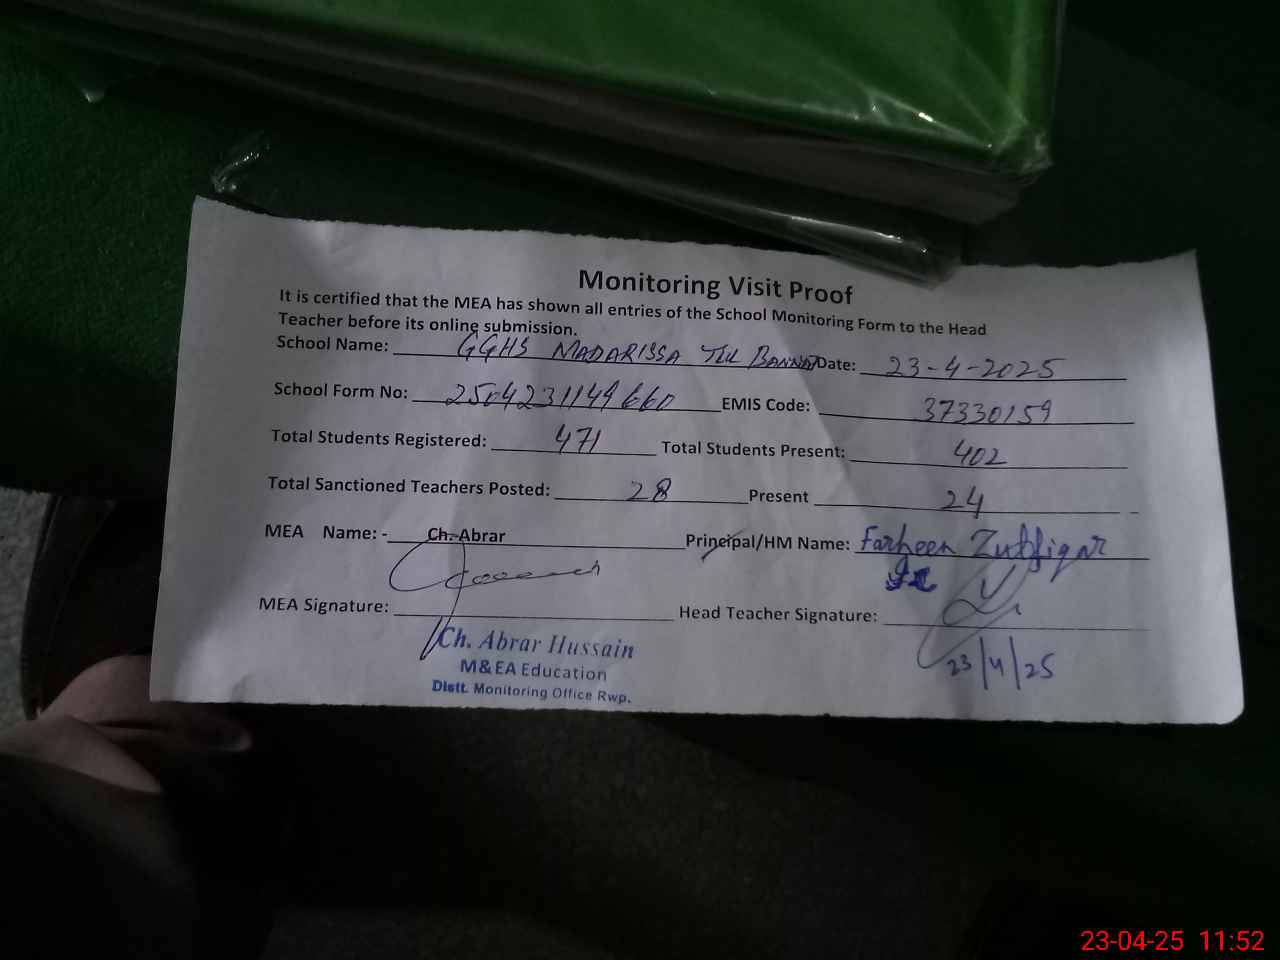 Monitoring Visit Proof
It is certified that the MEA has shown all entries of the School Monitoring Form to the Head
Teacher before its online submission.
School Name: GGHS MADARISSA TUL BANNAT Date: 23-4-2025
School Form No: 2504231149660 EMIS Code: 37330159
Total Students Registered: 471 Total Students Present: 402
Total Sanctioned Teachers Posted: 28 Present 24
MEA Name: - Ch. Abrar Principal/HM Name: Farheen Zulfiqar
MEA Signature: Head Teacher Signature:
23/4/25
Ch. Abrar Hussain
M&EA Education
Distt. Monitoring Office Rwp.
23-04-25 11:52